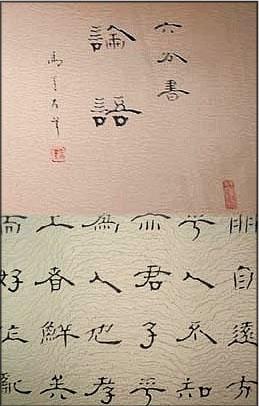 六分書
論語
朋自遠方
乎人不知
亦君子乎
為人也孝
上者鮮矣
而好作亂